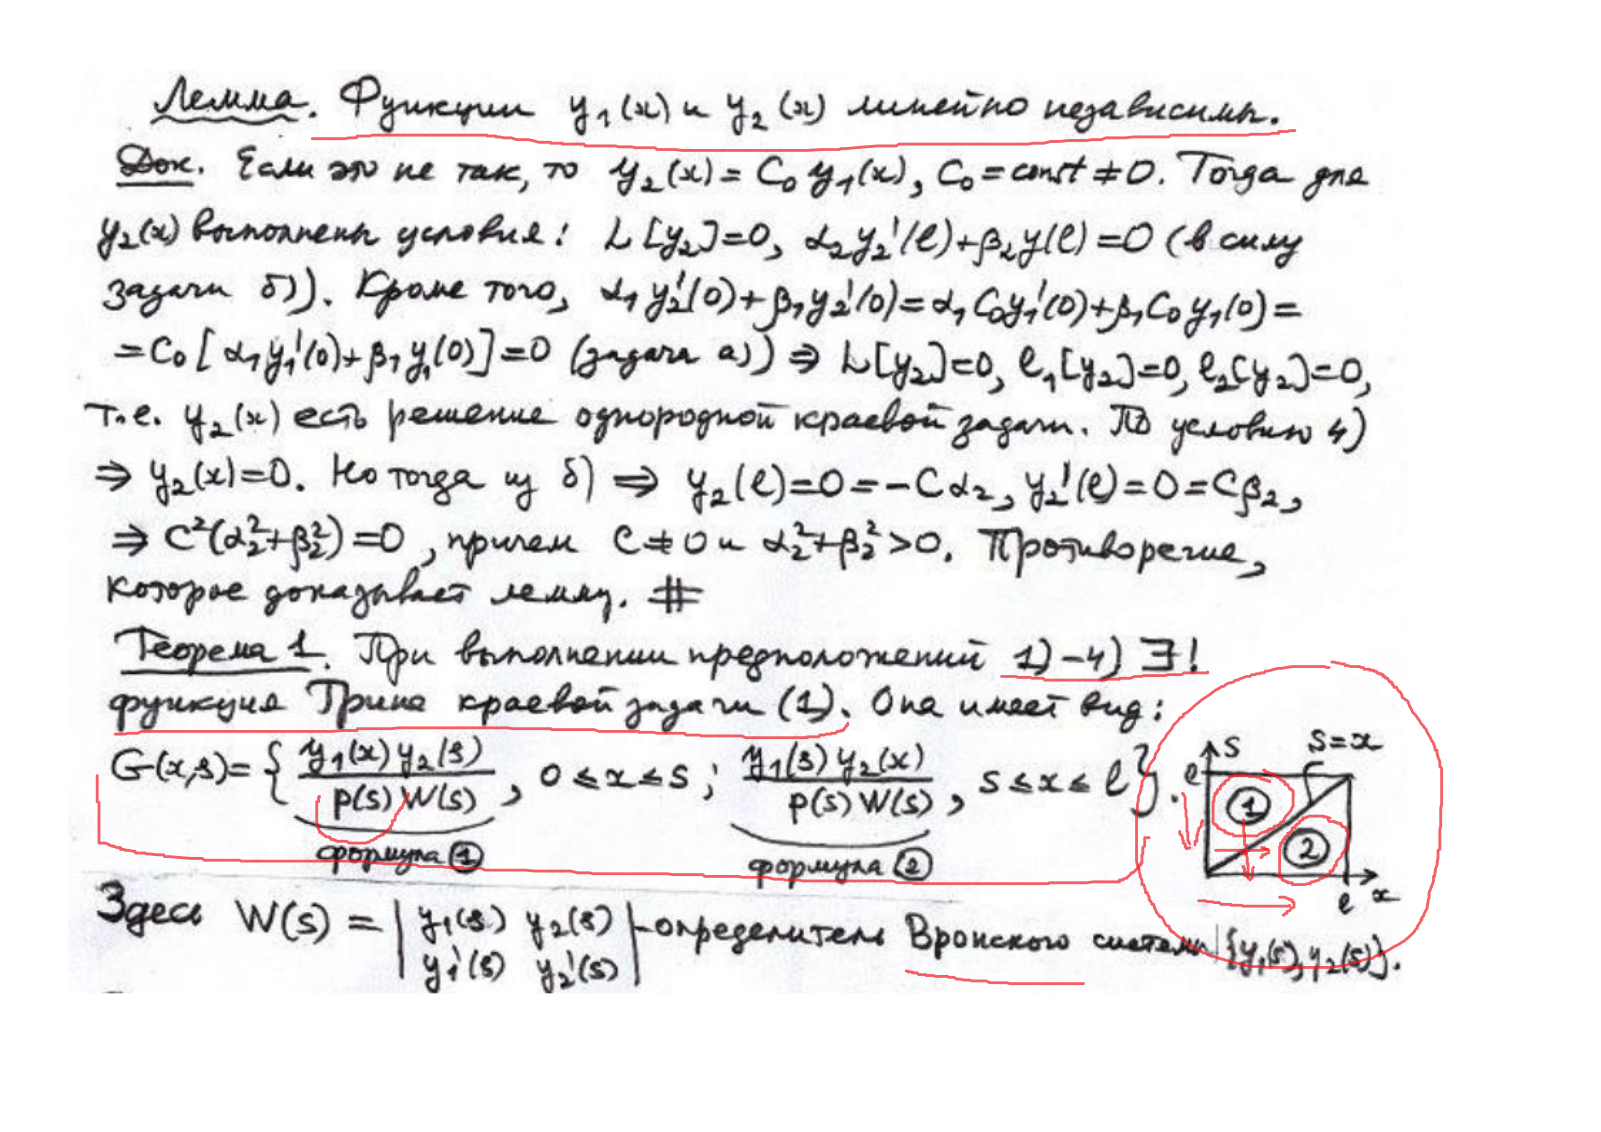 Лемма. Функции y₁(x) и y₂(x) линейно независимы.
Док. Если это не так, то y₂(x) = C₀ y₁(x), C₀ = const ≠ 0. Тогда для
y₂(x) выполнены условия: L[y₂]=0, α₂y₂'(l)+β₂y(l)=0 (в силу
задачи б)). Кроме того, α₁y₂'(0)+β₁y₂'(0)=α₁C₀y₁'(0)+β₁C₀y₁(0)=
=C₀[α₁y₁'(0)+β₁y₁(0)]=0 (задача а)) ⇒ L[y₂]=0, l₁[y₂]=0, l₂[y₂]=0,
т.е. y₂(x) есть решение однородной краевой задачи. По условию 4)
⇒ y₂(x)=0. Но тогда из б) ⇒ y₂(l)=0=-Cα₂, y₂'(l)=0=Cβ₂,
⇒ C²(α₂²+β₂²)=0, причем C≠0 и α₂²+β₂²>0. Противоречие,
которое доказывает лемму. #
Теорема 1. При выполнении предположений 1)-4) ∃!
функция Грина краевой задачи (1). Она имеет вид:
G(x,s)={ y₁(x)y₂(s) / p(s)W(s), 0≤x≤s; y₁(s)y₂(x) / p(s)W(s), s≤x≤l}.
формула ① формула ②
s s=x
l ①
②
l x
Здесь W(s) = | y₁(s) y₂(s) | - определитель Вронского системы {y₁(s), y₂(s)}.
| y₁'(s) y₂'(s) |